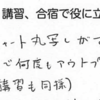 講習、合宿で役に立
ート丸写しがう
で何度もアウトプ
講習も同様)